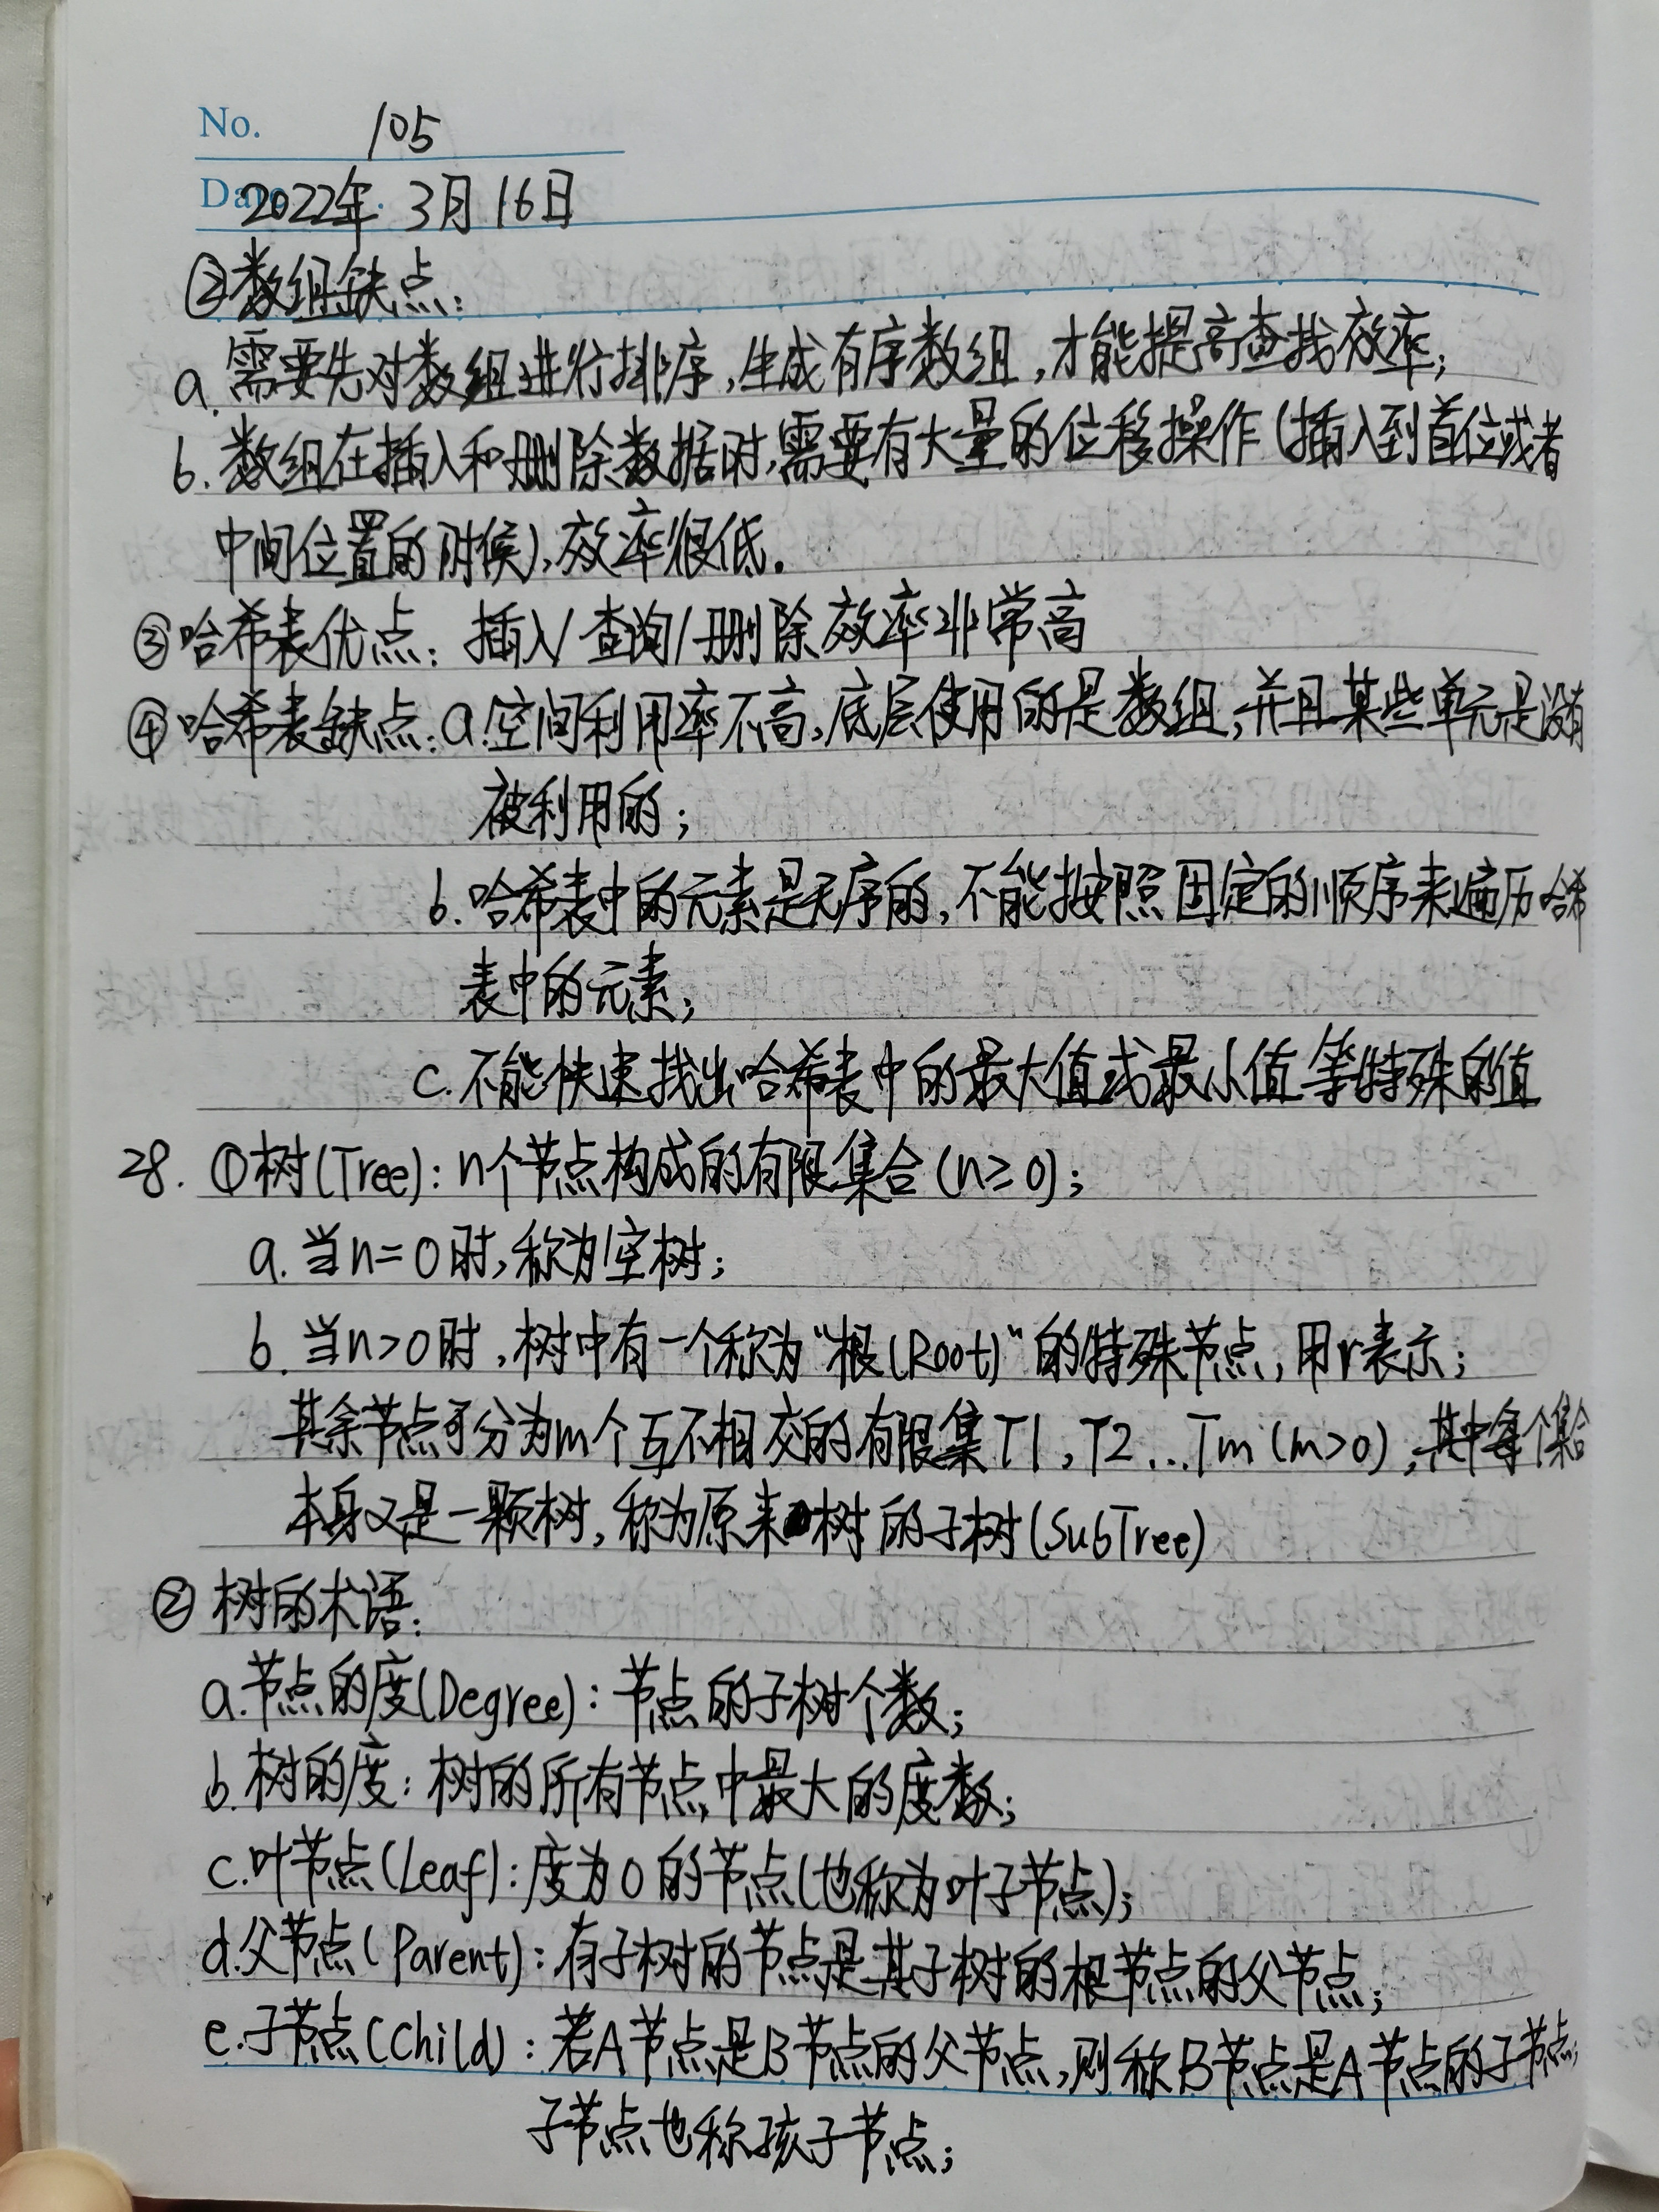 No. 105
Date 2022年 3月16日
②数组缺点:
a.需要先对数组进行排序,生成有序数组,才能提高查找效率;
b.数组在插入和删除数据时,需要有大量的位移操作(插入到首位或者
中间位置的时候),效率很低.
③哈希表优点: 插入/查询/删除效率非常高
④哈希表缺点:a.空间利用率不高,底层使用的是数组,并且某些单元是没有
被利用的;
b.哈希表中的元素是无序的,不能按照固定的顺序来遍历哈希
表中的元素;
c.不能快速找出哈希表中的最大值或最小值等特殊的值
28. ①树(Tree):n个节点构成的有限集合(n≥0);
a.当n=0时,称为空树;
b.当n>0时,树中有一个称为“根(Root)”的特殊节点,用r表示;
其余节点可分为m个互不相交的有限集T1,T2...Tm(m>0),其中每个集合
本身又是一颗树,称为原来树的子树(SubTree)
②树的术语:
a.节点的度(Degree):节点的子树个数;
b.树的度:树的所有节点中最大的度数;
c.叶节点(Leaf):度为0的节点(也称为叶子节点);
d.父节点(Parent):有子树的节点是其子树的根节点的父节点;
e.子节点(Child):若A节点是B节点的父节点,则称B节点是A节点的子节点;
子节点也称孩子节点;